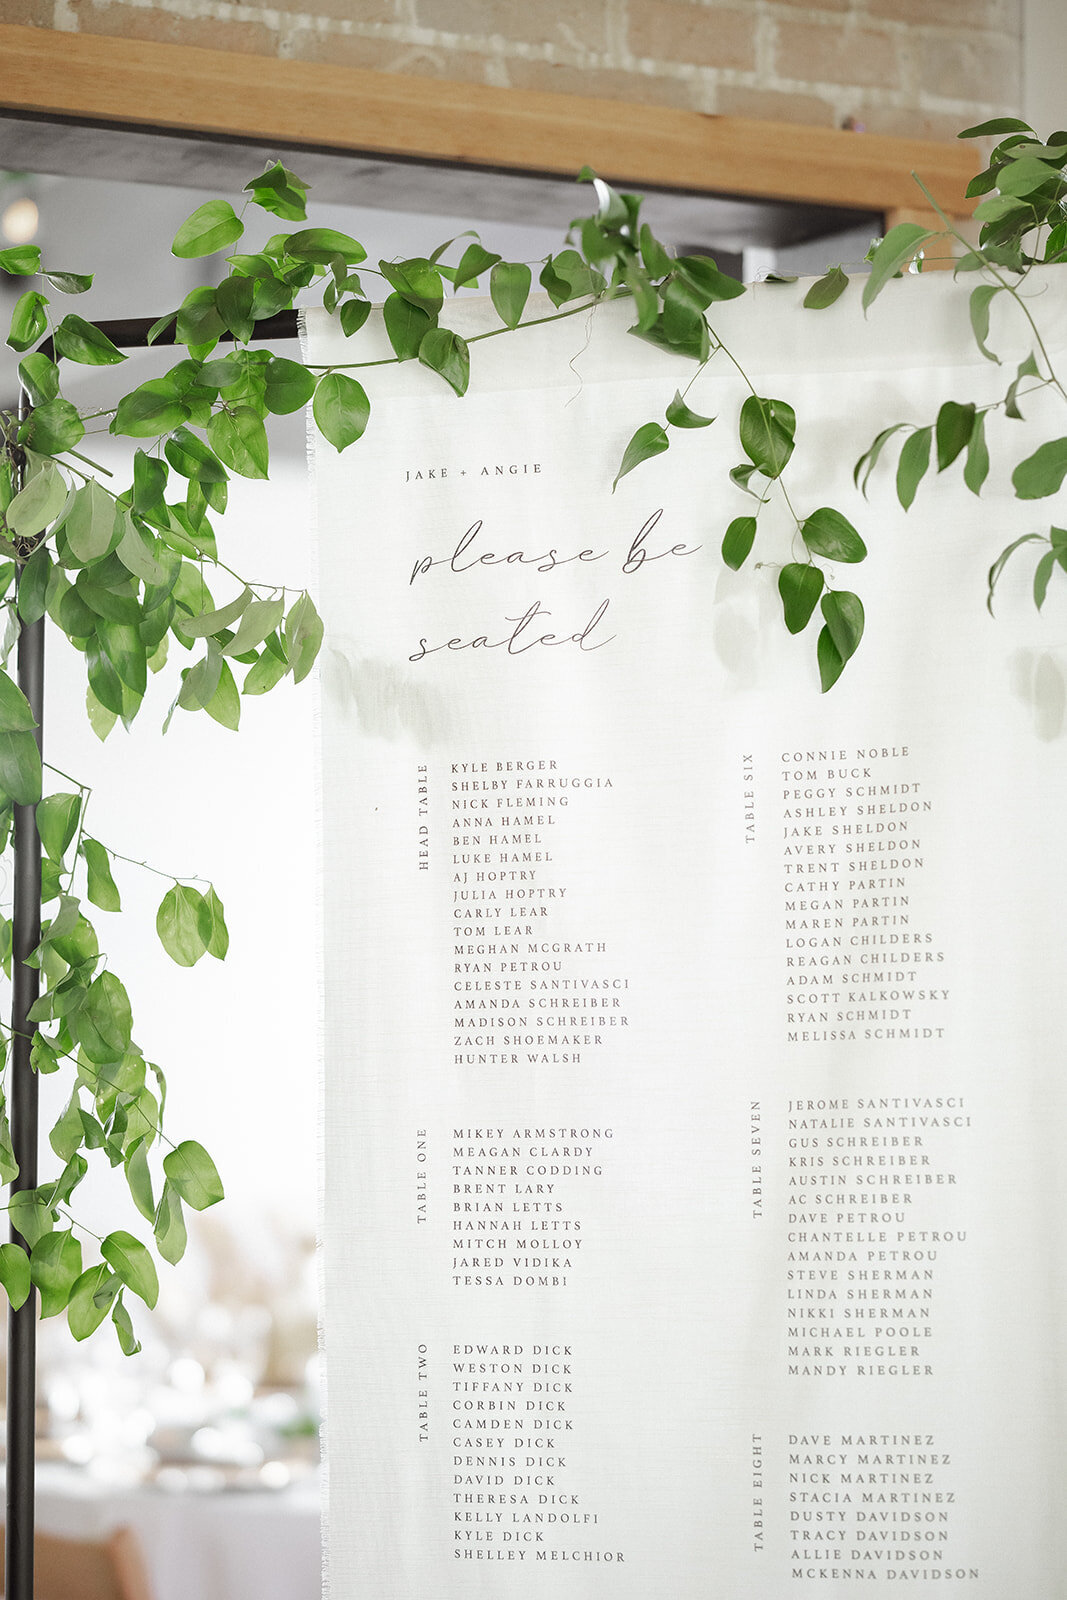 JAKE + ANGIE
please be
seated
HEAD TABLE
KYLE BERGER
SHELBY FARRUGGIA
NICK FLEMING
ANNA HAMEL
BEN HAMEL
LUKE HAMEL
AJ HOPTRY
JULIA HOPTRY
CARLY LEAR
TOM LEAR
MEGHAN MCGRATH
RYAN PETROU
CELESTE SANTIVASCI
AMANDA SCHREIBER
MADISON SCHREIBER
ZACH SHOEMAKER
HUNTER WALSH
TABLE ONE
MIKEY ARMSTRONG
MEAGAN CLARDY
TANNER CODDING
BRENT LARY
BRIAN LETTS
HANNAH LETTS
MITCH MOLLOY
JARED VIDIKA
TESSA DOMBI
TABLE TWO
EDWARD DICK
WESTON DICK
TIFFANY DICK
CORBIN DICK
CAMDEN DICK
CASEY DICK
DENNIS DICK
DAVID DICK
THERESA DICK
KELLY LANDOLFI
KYLE DICK
SHELLEY MELCHIOR
TABLE SIX
CONNIE NOBLE
TOM BUCK
PEGGY SCHMIDT
ASHLEY SHELDON
JAKE SHELDON
AVERY SHELDON
TRENT SHELDON
CATHY PARTIN
MEGAN PARTIN
MAREN PARTIN
LOGAN CHILDERS
REAGAN CHILDERS
ADAM SCHMIDT
SCOTT KALKOWSKY
RYAN SCHMIDT
MELISSA SCHMIDT
TABLE SEVEN
JEROME SANTIVASCI
NATALIE SANTIVASCI
GUS SCHREIBER
KRIS SCHREIBER
AUSTIN SCHREIBER
AC SCHREIBER
DAVE PETROU
CHANTELLE PETROU
AMANDA PETROU
STEVE SHERMAN
LINDA SHERMAN
NIKKI SHERMAN
MICHAEL POOLE
MARK RIEGLER
MANDY RIEGLER
TABLE EIGHT
DAVE MARTINEZ
MARCY MARTINEZ
NICK MARTINEZ
STACIA MARTINEZ
DUSTY DAVIDSON
TRACY DAVIDSON
ALLIE DAVIDSON
MCKENNA DAVIDSON